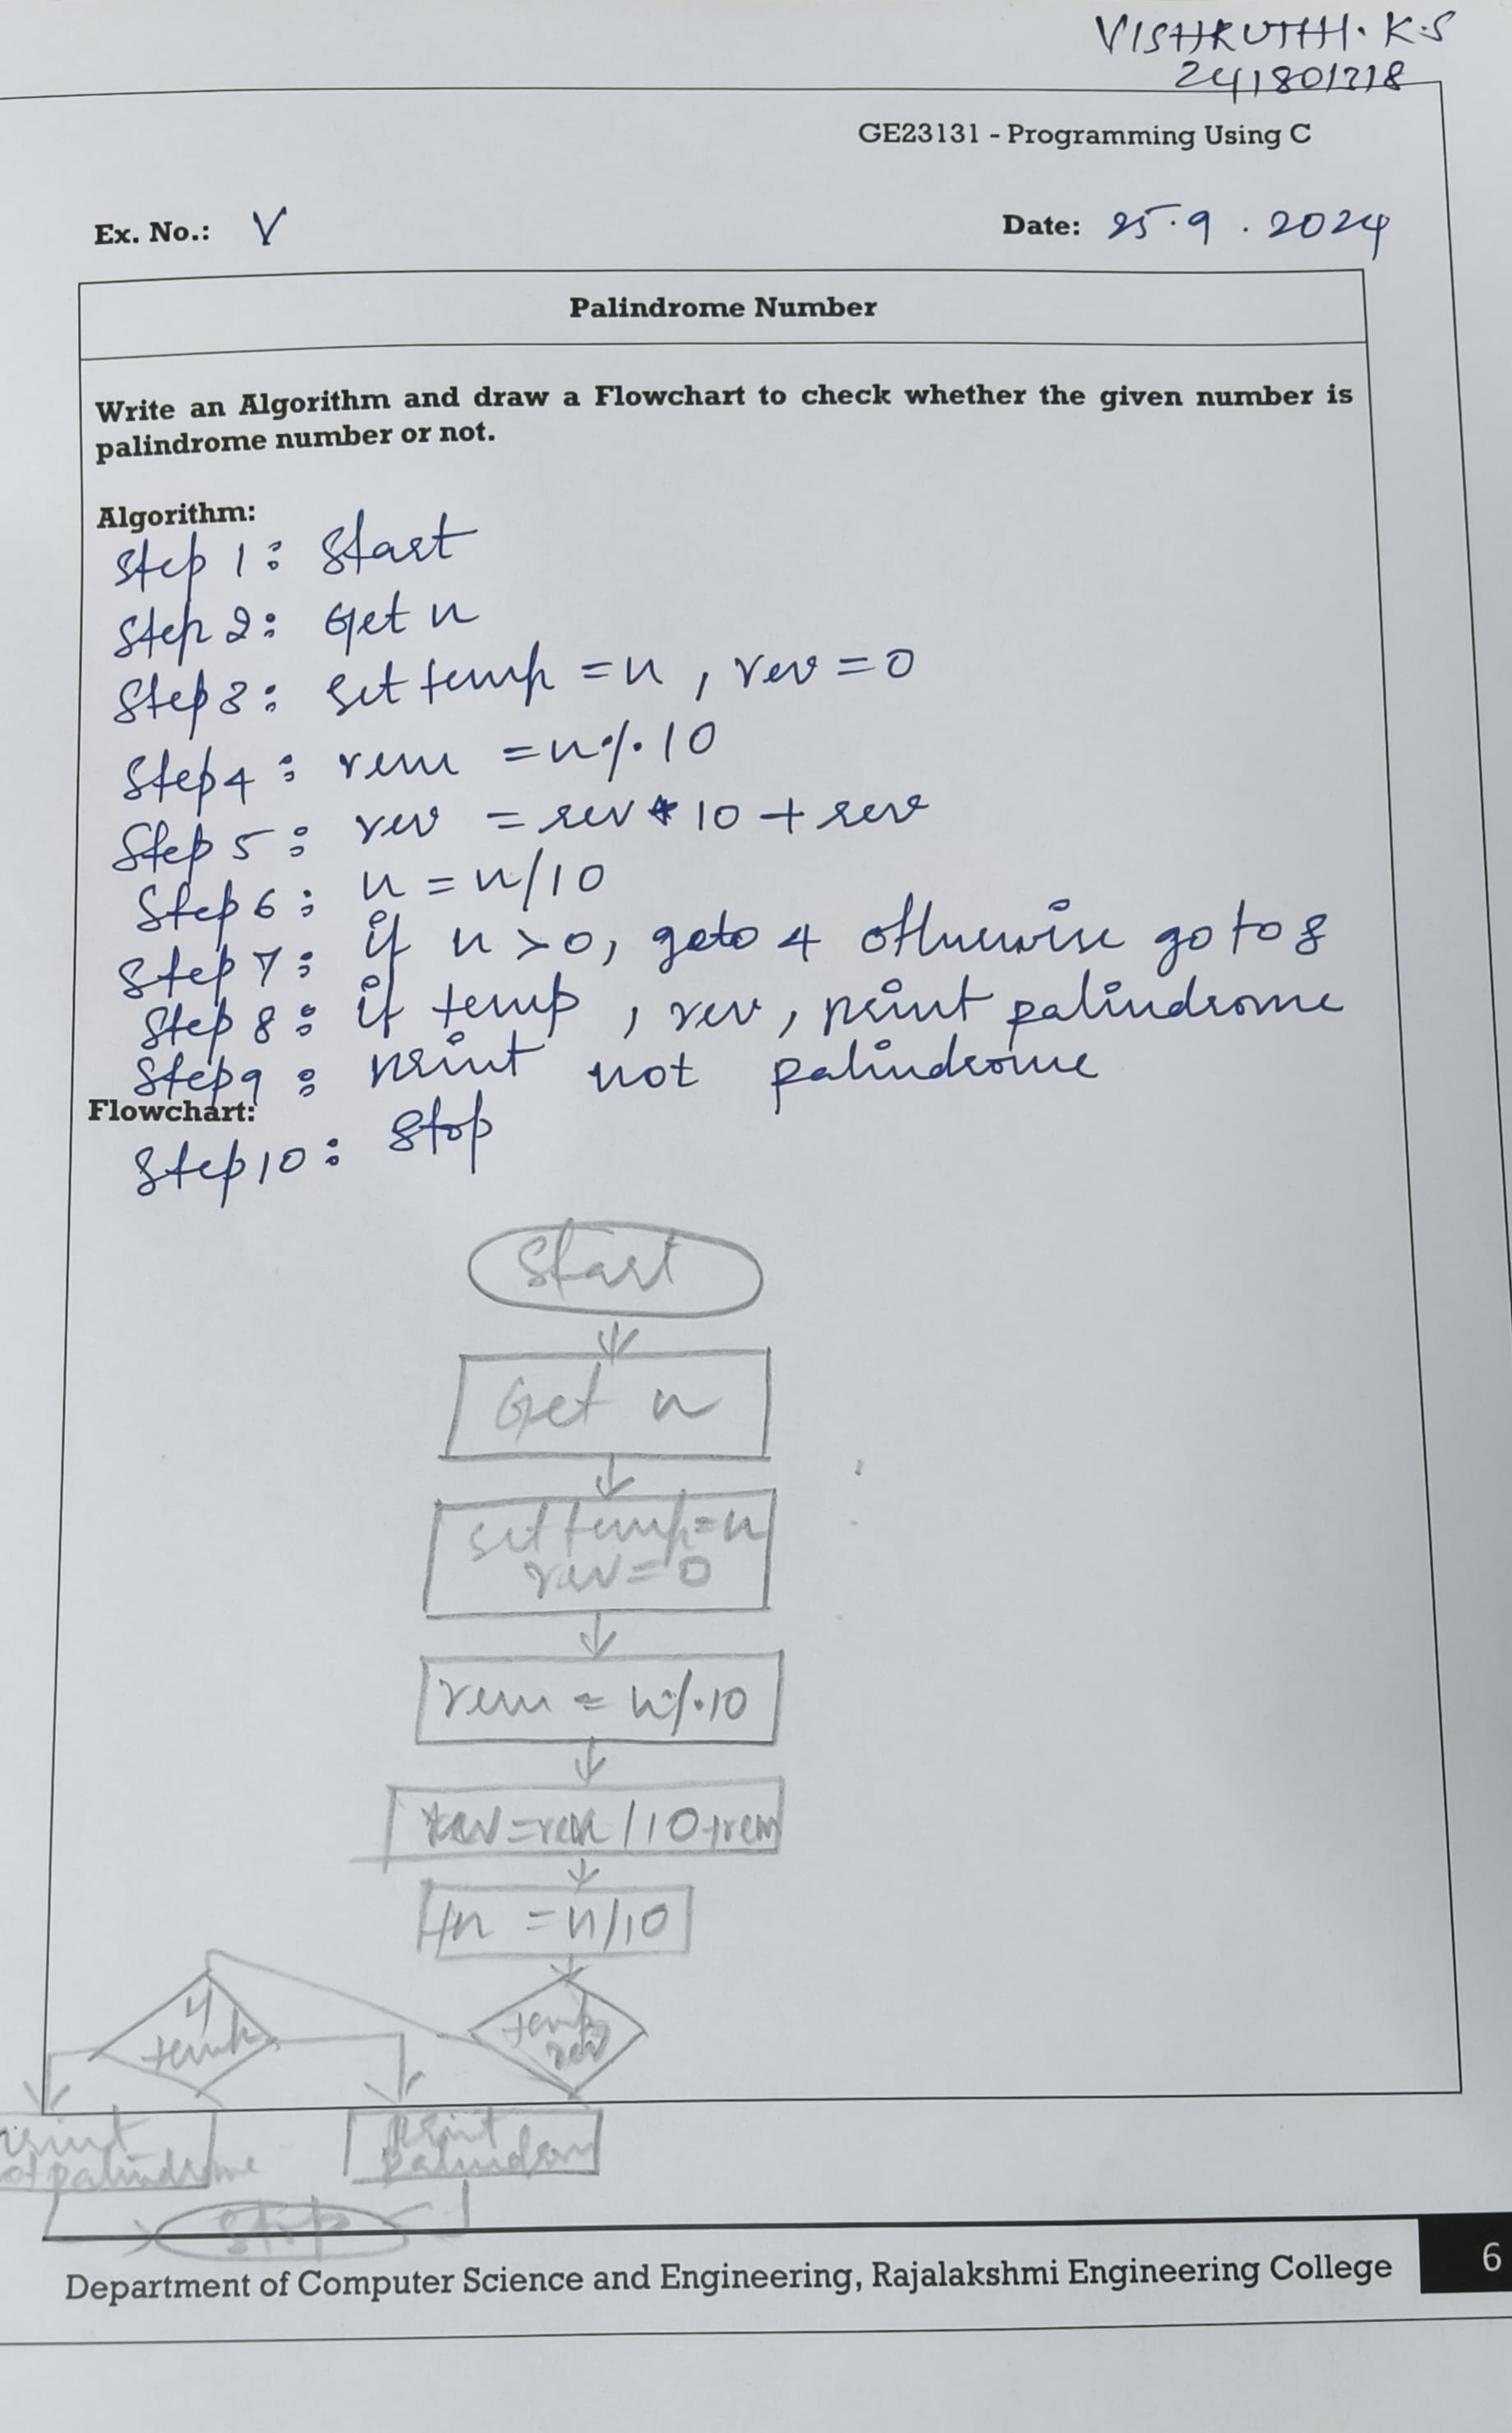 VISHRUTHH. K.S
241801318
GE23131 - Programming Using C
Ex. No.: V
Date: 25.9.2024
Palindrome Number
Write an Algorithm and draw a Flowchart to check whether the given number is
palindrome number or not.
Algorithm:
Step 1: Start
Step 2: Get n
Step 3: Set temp = n, rev = 0
Step 4: rem = n % 10
Step 5: rev = rev * 10 + rev
Step 6: n = n/10
Step 7: if n > 0, goto 4 otherwise go to 8
Step 8: if temp, rev, print palindrome
Step 9: print not palindrome
Flowchart:
Step 10: Stop
Start
Get n
set temp = n
rev = 0
rem = n % 10
rev = rem / 10 + rem
n = n/10
temp
rev
if
temp
print
palindrome
print
palindrom
Stop
Department of Computer Science and Engineering, Rajalakshmi Engineering College
6